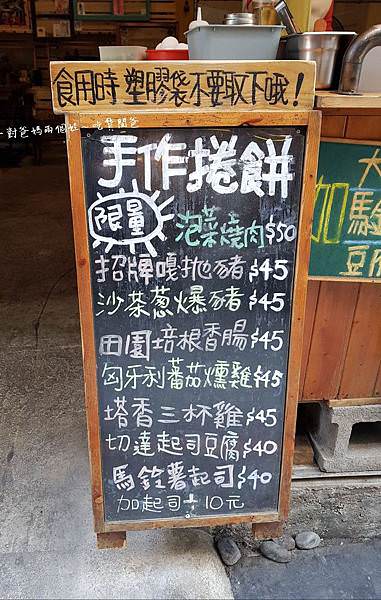 食用時塑膠袋不要取下哦!
手作捲餅
限量
泡菜燒肉$50
招牌嘎拋豬$45
沙茶蔥爆豬$45
田園培根香腸$45
匈牙利蕃茄燻雞$45
塔香三杯雞$45
切達起司豆腐$40
馬鈴薯起司$40
加起司+10元
加
豆腐